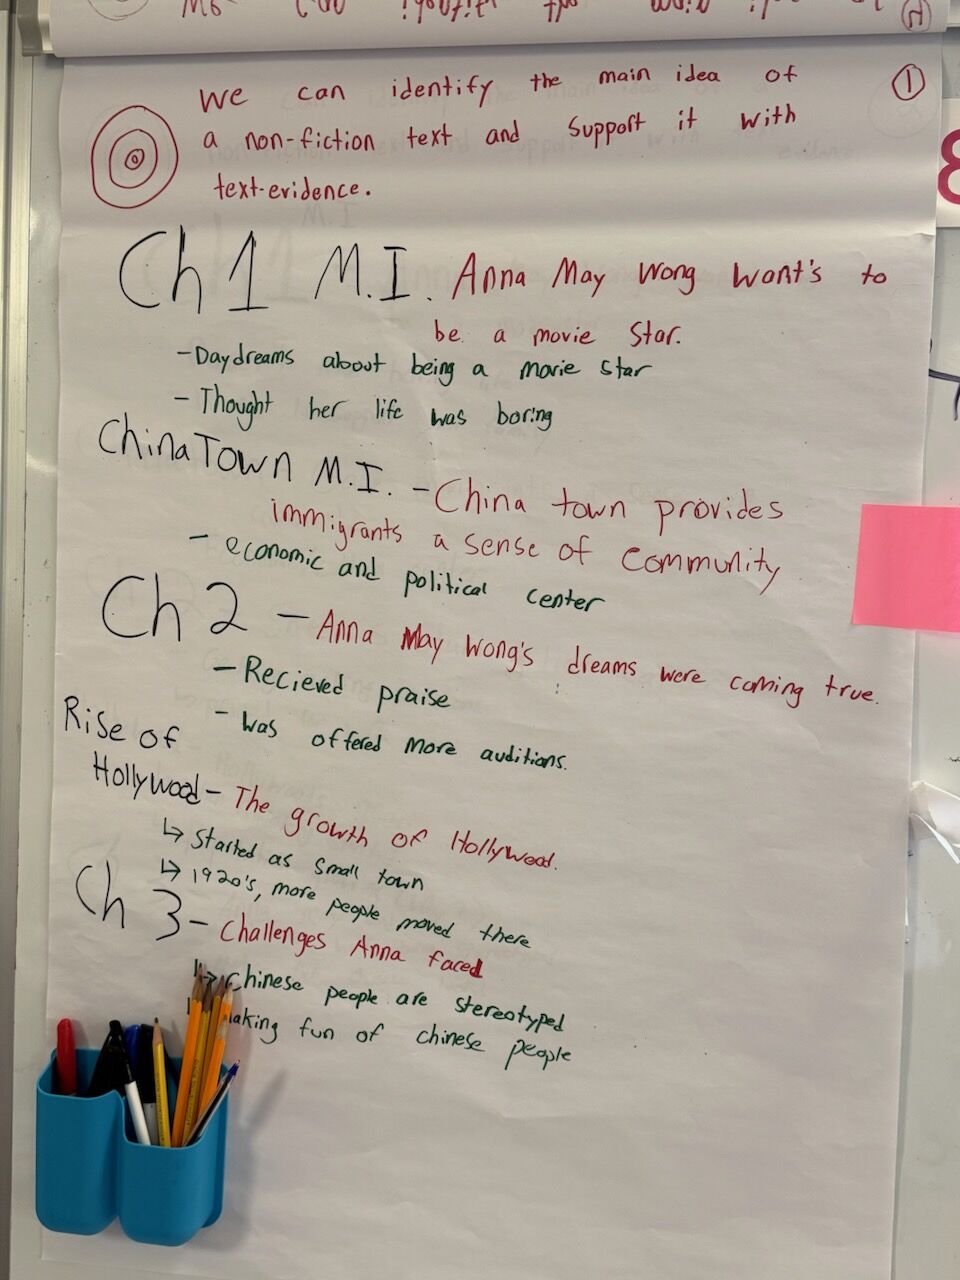 We can identify the main idea of
a non-fiction text and support it with
text-evidence.
1
Ch 1 M.I. Anna May Wong Want's to
be a movie Star.
- Daydreams about being a movie star
- Thought her life was boring
China Town M.I. - China town provides
immigrants a sense of community
- economic and political center
Ch 2 - Anna May Wong's dreams were coming true.
- Recieved praise
- Was offered more auditions.
Rise of
Hollywood - The growth of Hollywood.
↳ Started as small town
↳ 1920's, more people moved there
Ch 3 - Challenges Anna faced
↳ Chinese people are stereotyped
fun of chinese people
8